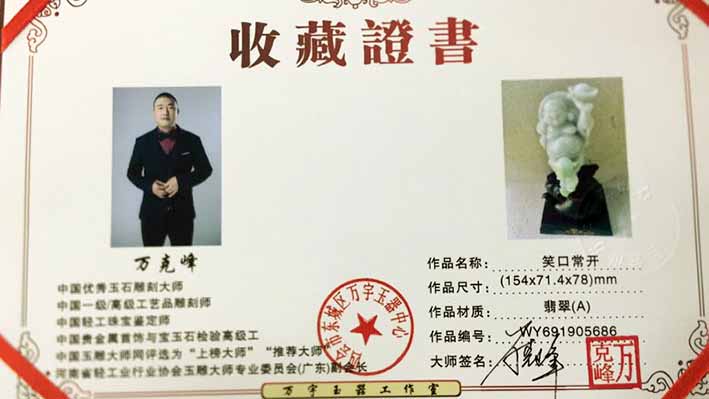 收藏證書
万克峰
中国优秀玉石雕刻大师
中国一级/高级工艺品雕刻师
中国轻工珠宝鉴定师
中国贵金属首饰与宝玉石检验高级工
中国玉雕大师网评选为“上榜大师”“推荐大师”
河南省轻工业行业协会玉雕大师专业委员会(广东)副会长
作品名称: 笑口常开
作品尺寸: (154x71.4x78)mm
作品材质: 翡翠(A)
作品编号: WY691905686
大师签名:
万克峰
四会市东城区万宇玉器中心
万宇玉器工作室